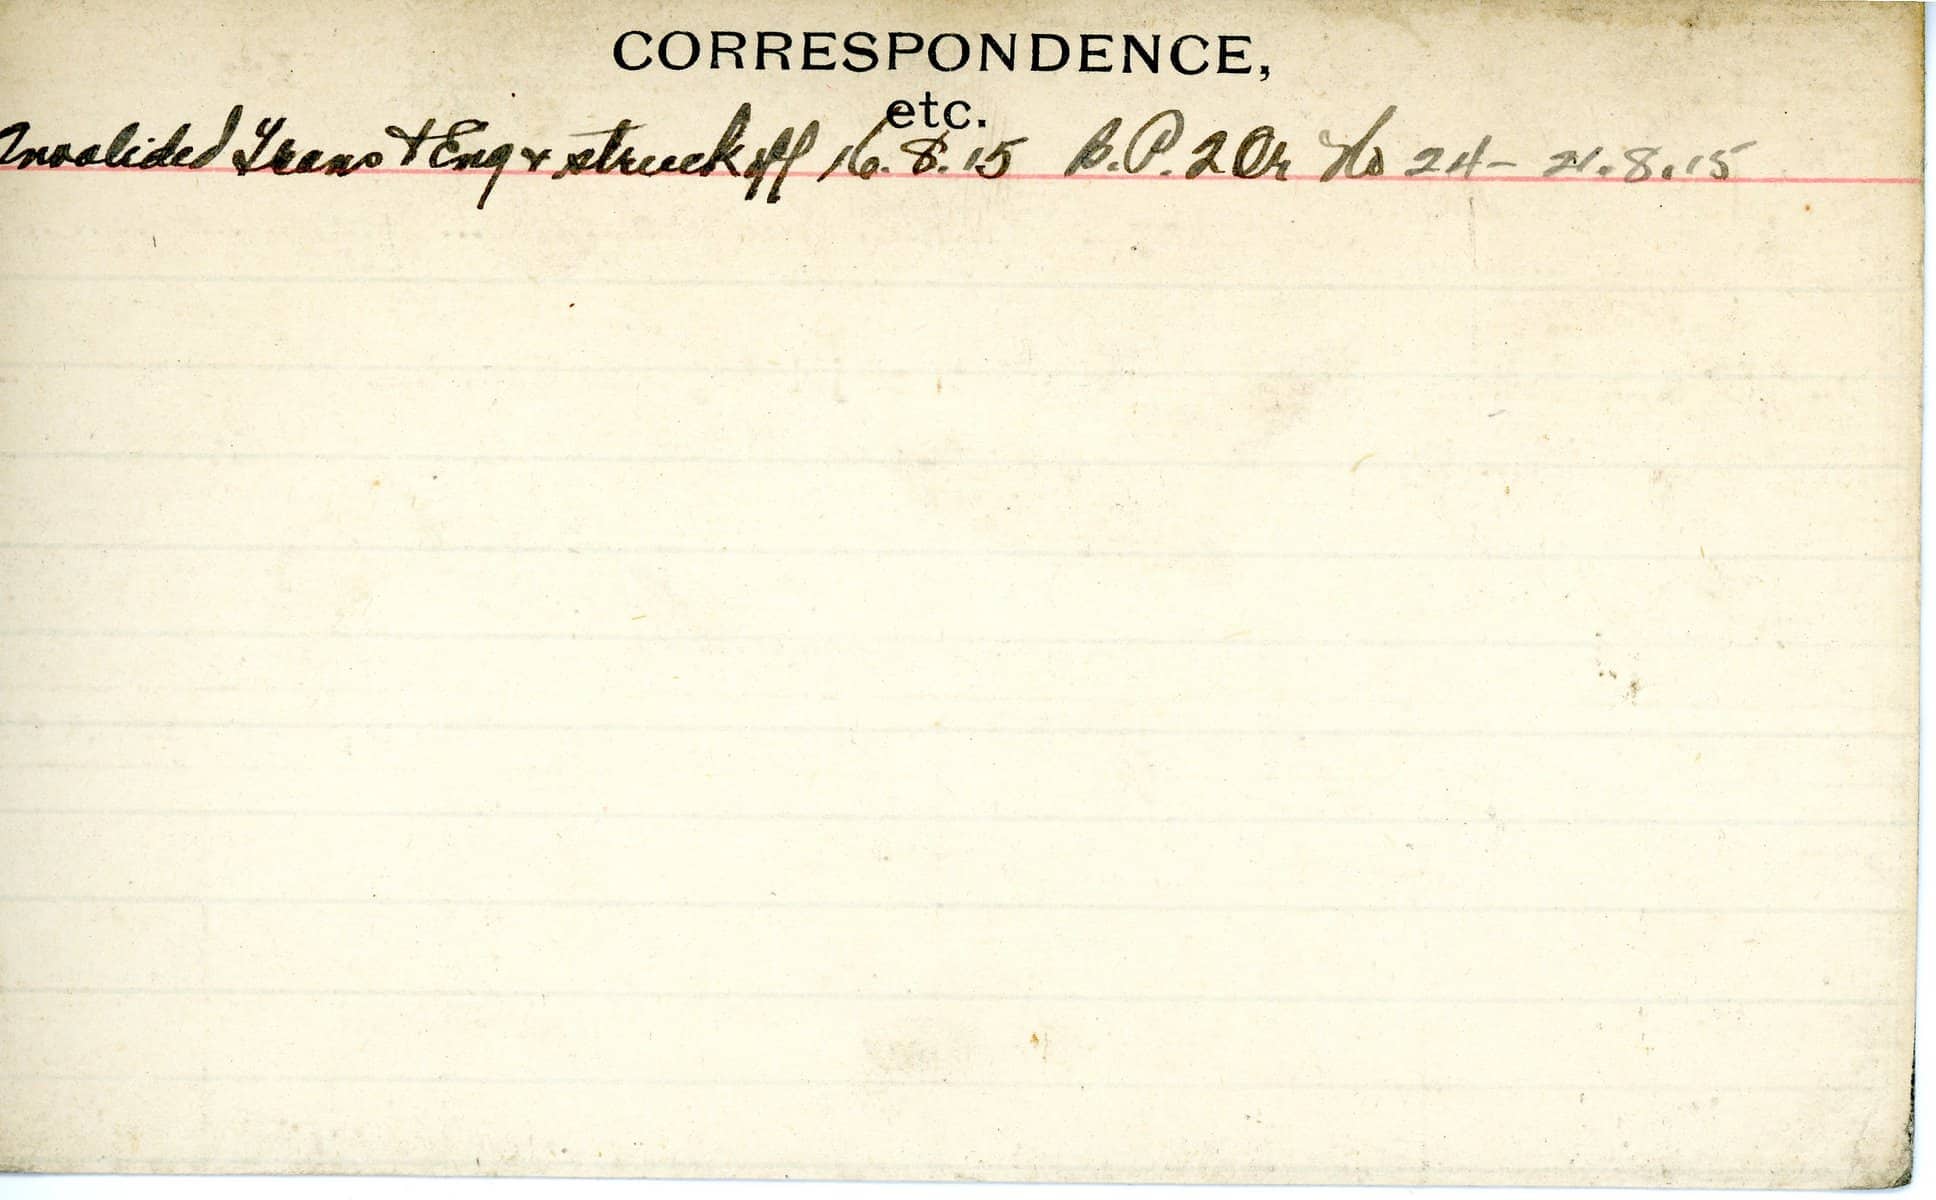 CORRESPONDENCE,
etc.
Invalided Trans t Eng & struck off 16.8.15 B.P. 2 Or No 24 - 21.8.15